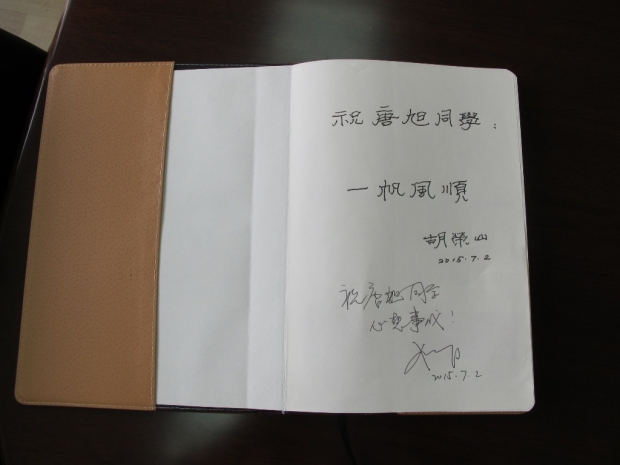 祝唐旭同學：
一帆風順
胡榮山
2015.7.2
祝唐旭同学
心想事成！
2015.7.2